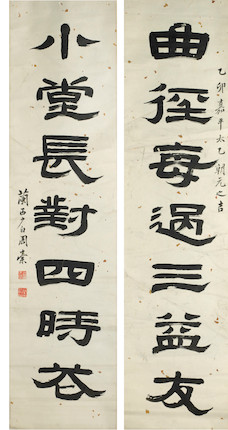 乙卯嘉平太乙朝元之吉
曲徑每過三益友
小堂長對四時花
蘭西少白周棠